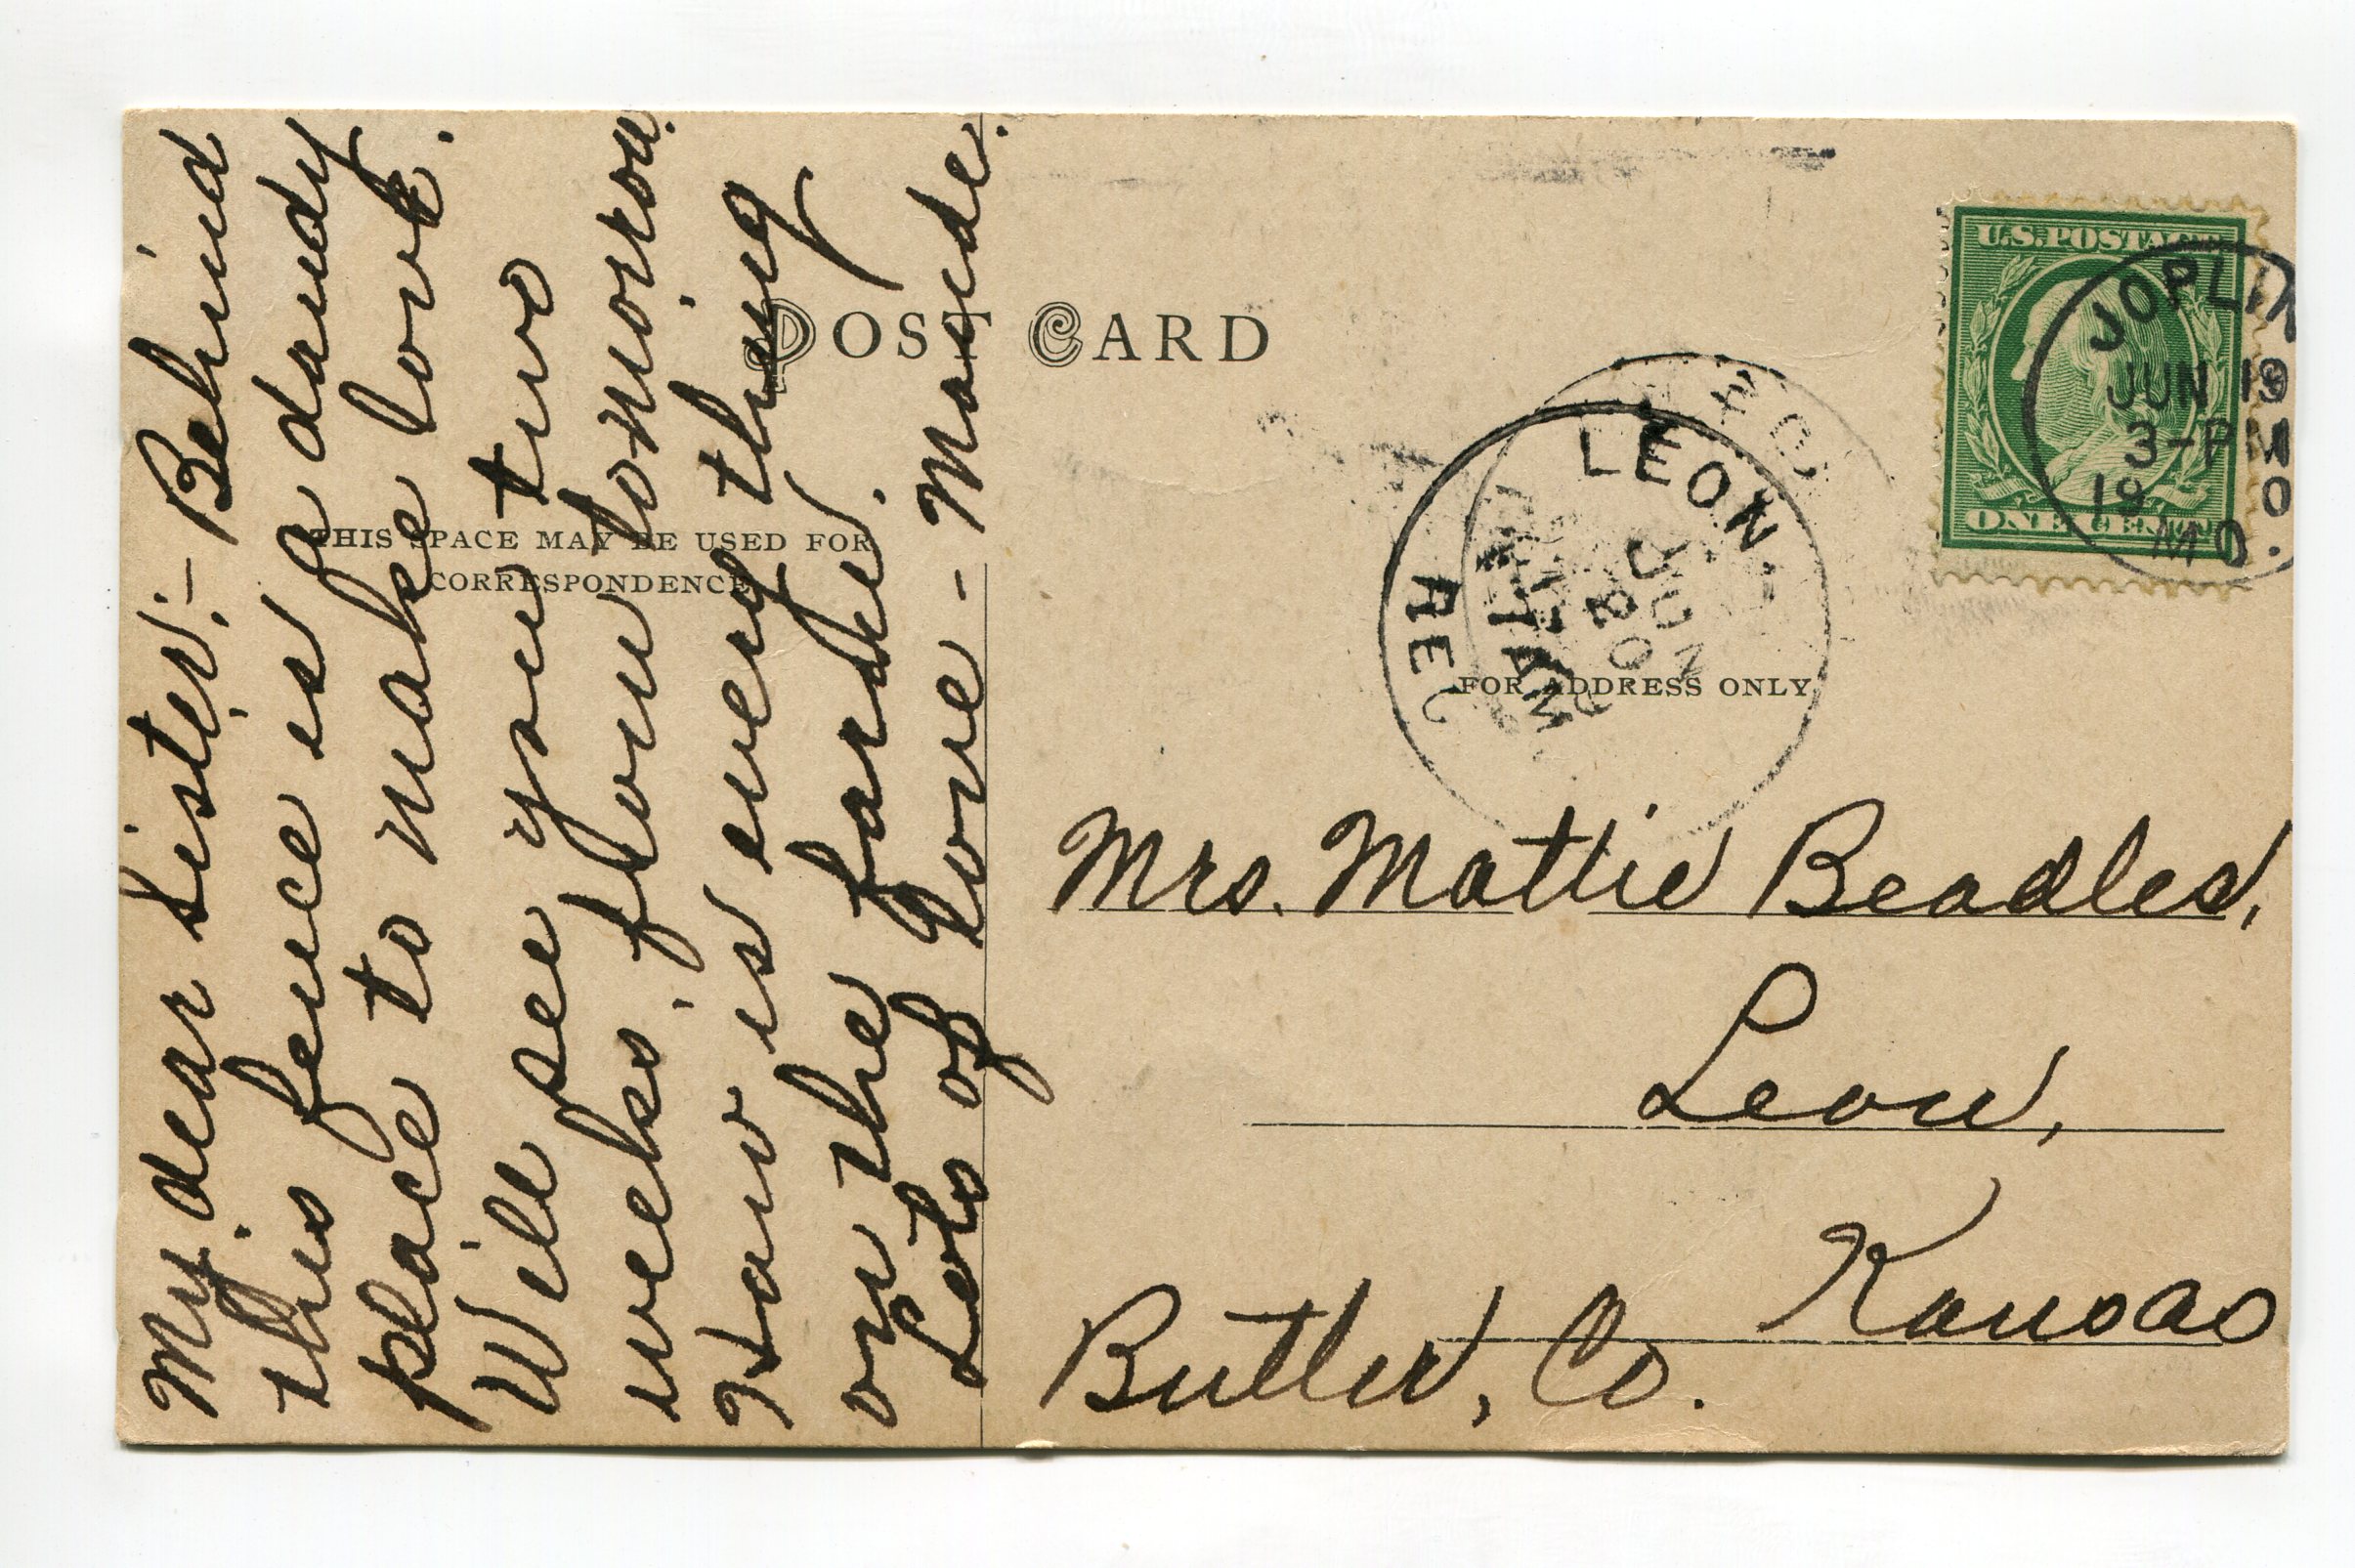 My dear Sister:- Behind
this fence is a dandy
place to make love.
Will see you two
weeks from tomorrow.
How is every thing
on the farm.
Lots of Love - Maude.
POST CARD
THIS SPACE MAY BE USED FOR
CORRESPONDENCE
FOR ADDRESS ONLY
U.S. POSTAGE
ONE CENT
JOPLIN
JUN 19
3-PM
19 0
MO.
LEON.
JUN
20
AM
REC
Mrs. Mattie Beadles,
Leon,
Kansas
Butler, Co.